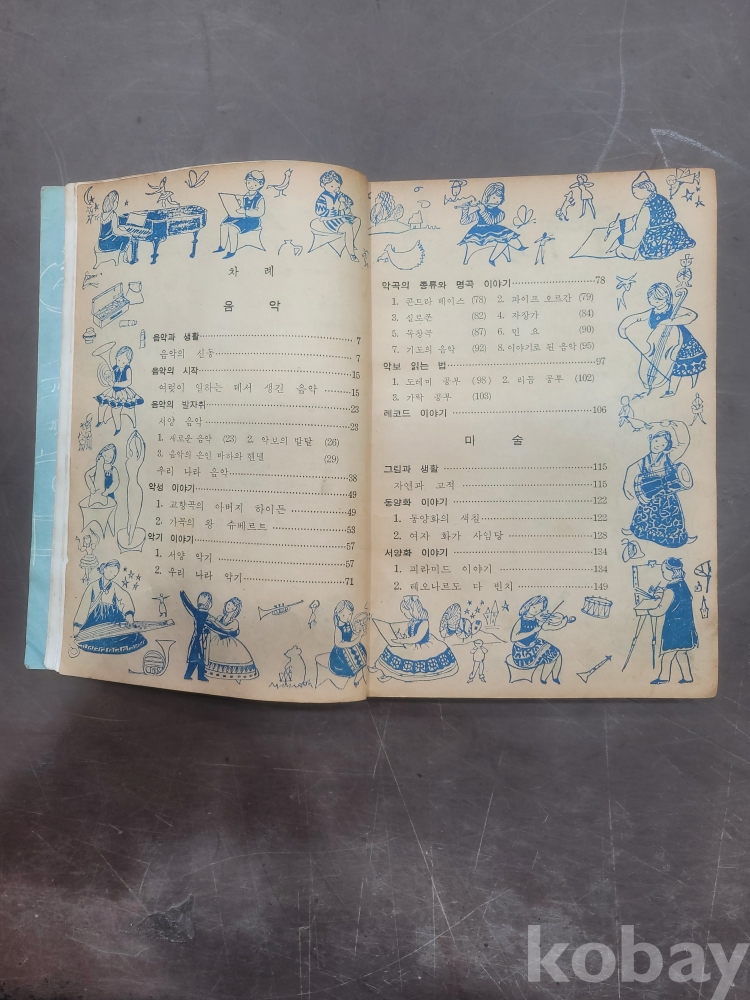 차 례
음 악
음악과 생활 7
음악의 신동 7
음악의 시작 15
여럿이 일하는 데서 생긴 음악 15
음악의 발자취 23
서양 음악 23
1. 새로운 음악 (23) 2. 악보의 발달 (26)
3. 음악의 은인 바하와 헨델 (29)
우리 나라 음악 38
악성 이야기 49
1. 교향곡의 아버지 하이든 49
2. 가곡의 왕 슈베르트 53
악기 이야기 57
1. 서양 악기 57
2. 우리 나라 악기 71
악곡의 종류와 명곡 이야기 78
1. 콘트라 베이스 (78) 2. 파이프 오르간 (79)
3. 실로폰 (82) 4. 자장가 (84)
5. 목장극 (87) 6. 민 요 (90)
7. 기도의 음악 (92) 8. 이야기로 된 음악 (95)
악보 읽는 법 97
1. 도레미 공부 (98) 2. 리듬 공부 (102)
3. 가락 공부 (103)
레코드 이야기 106
미 술
그림과 생활 115
자연과 고적 115
동양화 이야기 122
1. 동양화의 색칠 122
2. 여자 화가 사임당 128
서양화 이야기 134
1. 피라미드 이야기 134
2. 레오나르도 다 빈치 149
kobay